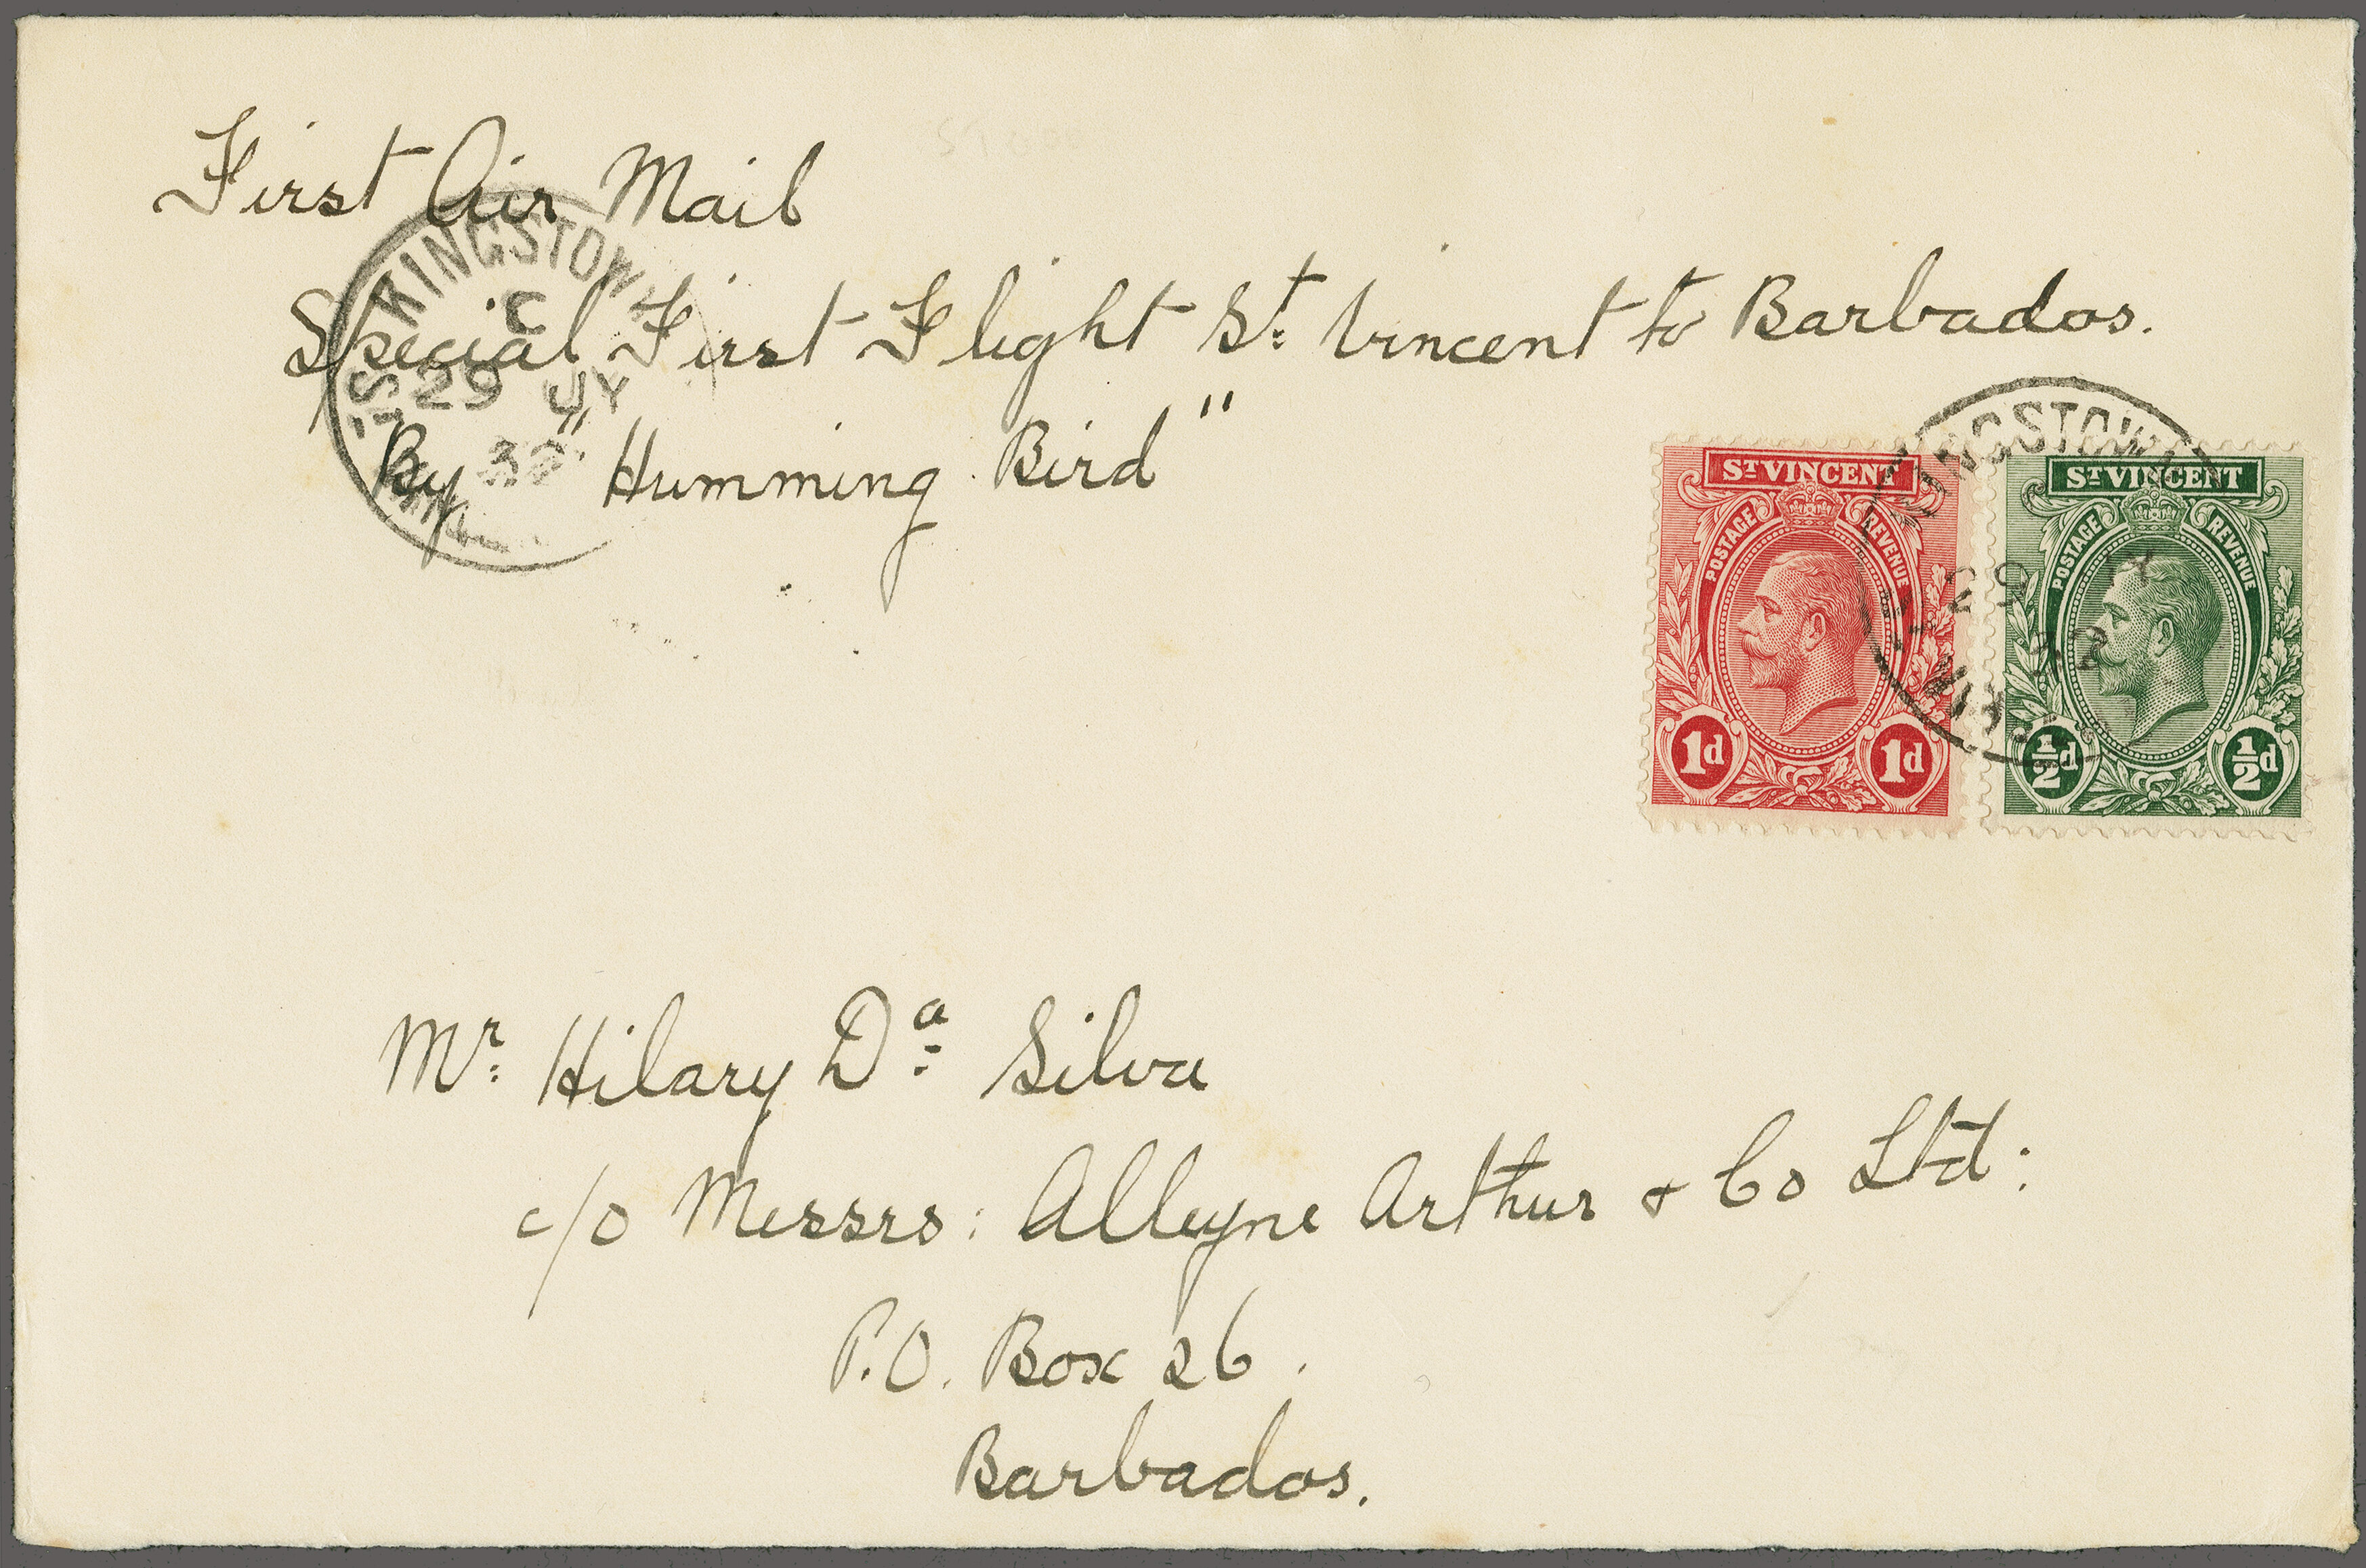 First Air Mail
Special First Flight St. Vincent to Barbados.
By "Humming Bird"
KINGSTOWN
C
29 JY
32
ST VINCENT
POSTAGE REVENUE
1d 1d
ST VINCENT
POSTAGE REVENUE
½d ½d
KINGSTOWN
29
32
Mr. Hilary Da. Silva
c/o Messrs: Alleyne Arthur & Co Ltd:
P.O. Box 26.
Barbados.